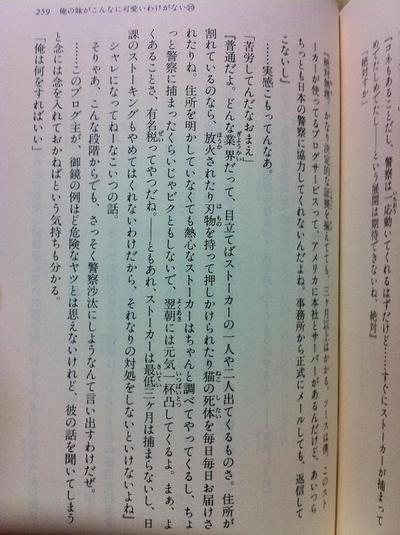 259 俺の妹がこんなに可愛いわけがない⑩
『コネもあることだし、警察は一応動いてくれるはずだけど……すぐにストーカーが捕まって
めでたしめでたし――という展開は期待できないね、絶対』
「絶対すか」
『絶対無理。かなり決定的な証拠を揃えてても、三ヶ月以上はかかる。ソースは僕。このスト
ーカーが使ってるブログサービスって、アメリカに本社とサーバーがあるんだけど、あいつら
ちっとも日本の警察に協力してくれないんだよね。事務所から正式にメールしても、返信して
こないし』
……実感こもってんなあ。
「苦労してんだなおまえ」
『普通だよ。どんな業界だって、目立てばストーカーの一人や二人出てくるものさ。住所が
割れているのなら、放火されたり刃物を持って押しかけられたり猫の死体を毎日毎日お届けさ
れたりね。住所を明かしていなくても熱心なストーカーはちゃんと調べてやってくるし、ちょ
っと警察に捕まったくらいじゃビクともしないで、翌朝には元気一杯凸してくるよ。まぁ、よ
くあることさ、有名税ってやつだね。――ともあれ、ストーカーは最低三ヶ月は捕まらないし、日
課のストーキングもやめてはくれないわけだから、それなりの対処をしないといけないよね』
シャレになってねーなこいつの話。
そりゃあ、こんな段階からでも、さっそく警察沙汰にしようなんて言い出すわけだぜ。
……このブログ主が、御鏡の例ほど危険なヤツとは思えないけれど、彼の話を聞いてしまう
と念には念を入れておかねばという気持ちも分かる。
「俺は何をすればいい」